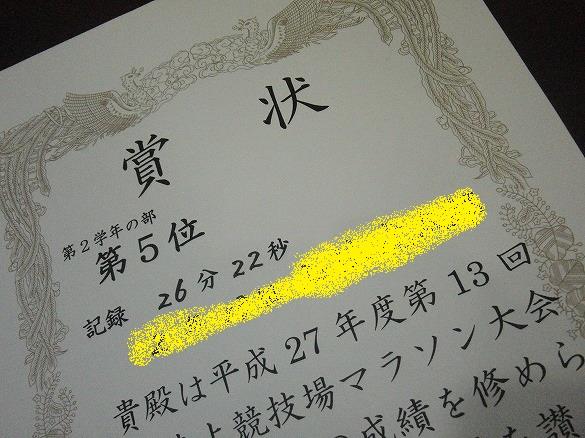 賞状
第２学年の部
第５位
記録 26分22秒
貴殿は平成27年度第13回
上競技場マラソン大会
成績を修めら
讃